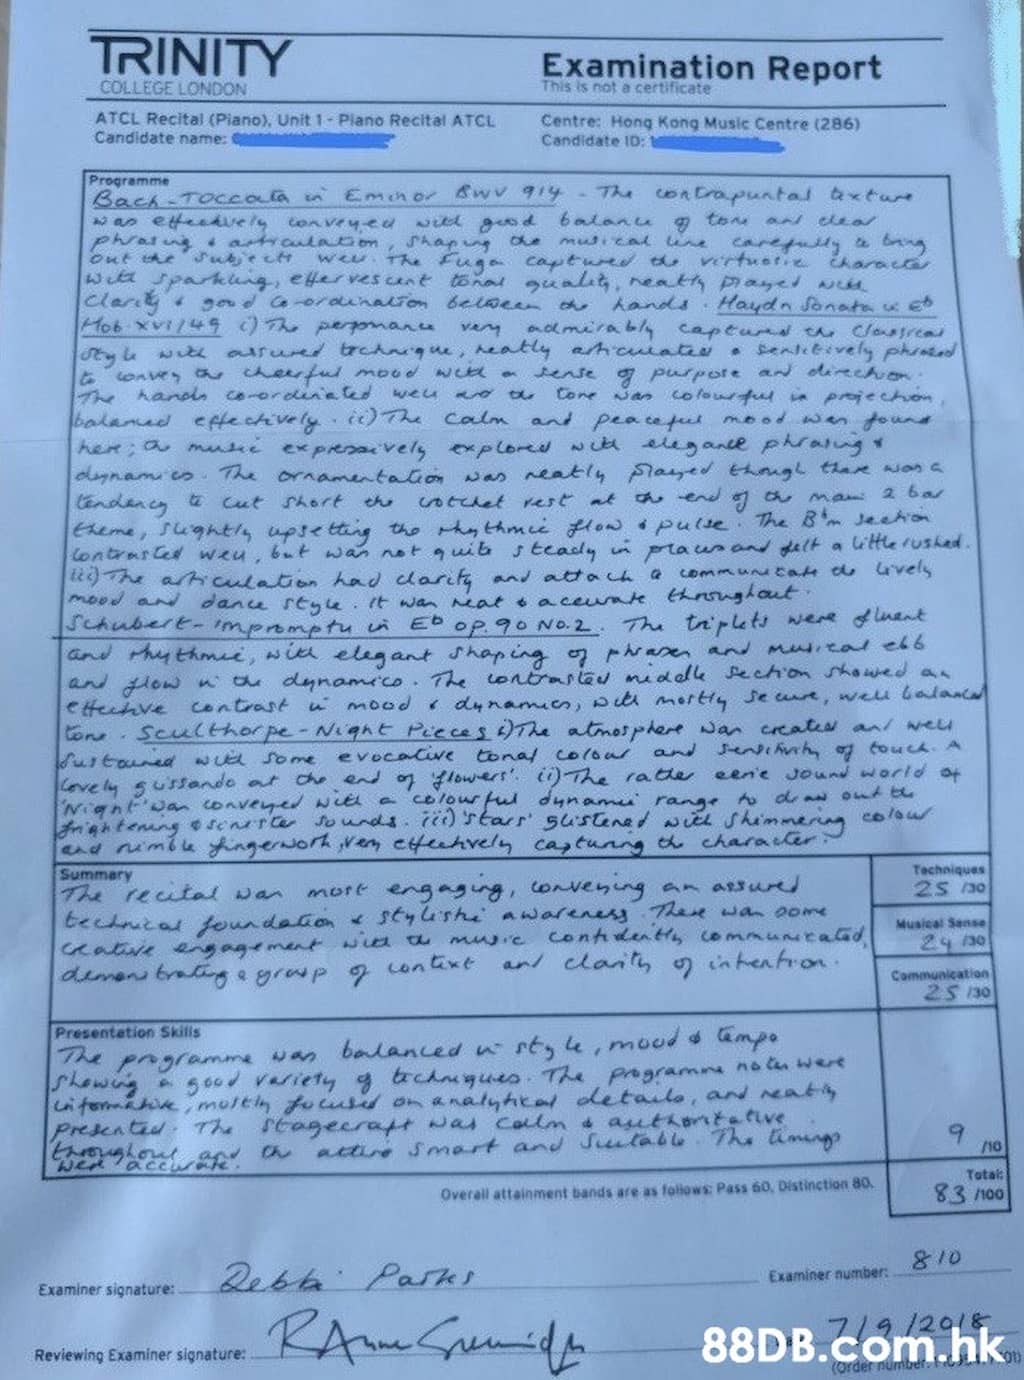 TRINITY
COLLEGE LONDON
Examination Report
This is not a certificate
ATCL Recital (Piano), Unit 1 - Piano Recital ATCL
Candidate name:
Centre: Hong Kong Music Centre (286)
Candidate ID:
Programme
Bach - Toccata in E minor BWV 914 - The contrapuntal texture
was effectively conveyed with good balance of tone and clear
phrasing & articulation, shaping the musical line carefully to bring
out the subjects well. The Fuga captured the virtuosic character
with sparkling, effervescent tonal quality, neatly played with
clarity & good co-ordination between the hands. Haydn Sonata in Eb
Hob. XVI/49 i) The performance very admirably captured the Classical
style with assured technique, neatly articulated & sensitively phrased
to convey the cheerful mood with a sense of purpose and direction.
The hands co-ordinated well and the tone was colourful in projection,
balanced effectively. ii) The calm and peaceful mood was found
here; the music expressively explored with elegant phrasing &
dynamics. The ornamentation was neatly played though there was a
tendency to cut short the crotchet rest at the end of the main 2 bar
theme, slightly upsetting the rhythmic flow & pulse. The Bbm section
contrasted well, but was not quite steady in places and felt a little rushed.
iii) The articulation had clarity and attack to communicate the lively
mood and dance style. It was neat & accurate throughout.
Schubert - Impromptu in Eb op.90 No.2. The triplets were fluent
and rhythmic, with elegant shaping of phrases and musical ebb
and flow in the dynamics. The contrasted middle section showed an
effective contrast in mood & dynamics, with mostly secure, well balanced
tone. Sculthorpe - Night Pieces i) The atmosphere was created and well
sustained with some evocative tonal colour and sensitivity of touch. A
lovely glissando at the end of 'flowers'. ii) The rather eerie sound world of
'Night' was conveyed with a colourful dynamic range to draw out the
frightening & sinister sounds. iii) 'Stars' glistened with shimmering colour
and nimble fingerwork, very effectively capturing the character.
Summary
The recital was most engaging, conveying an assured
technical foundation & stylistic awareness. There was some
creative engagement with the music confidently communicated,
demonstrating a grasp of context and clarity of intention.
Techniques
25 /30
Musical Sense
24 /30
Communication
25 /30
Presentation Skills
The programme was balanced in style, mood & tempo
showing a good variety of techniques. The programme notes were
informative, mostly focused on analytical details, and neatly
presented. The stagecraft was calm & authoritative
throughout and the attire smart and suitable. The timings
were accurate.
9 /10
Total:
83 /100
Overall attainment bands are as follows: Pass 60, Distinction 80.
Examiner signature: Debbi Parks
Examiner number: 810
Reviewing Examiner signature:
7/9/2018
88DB.com.hk
(Order number: